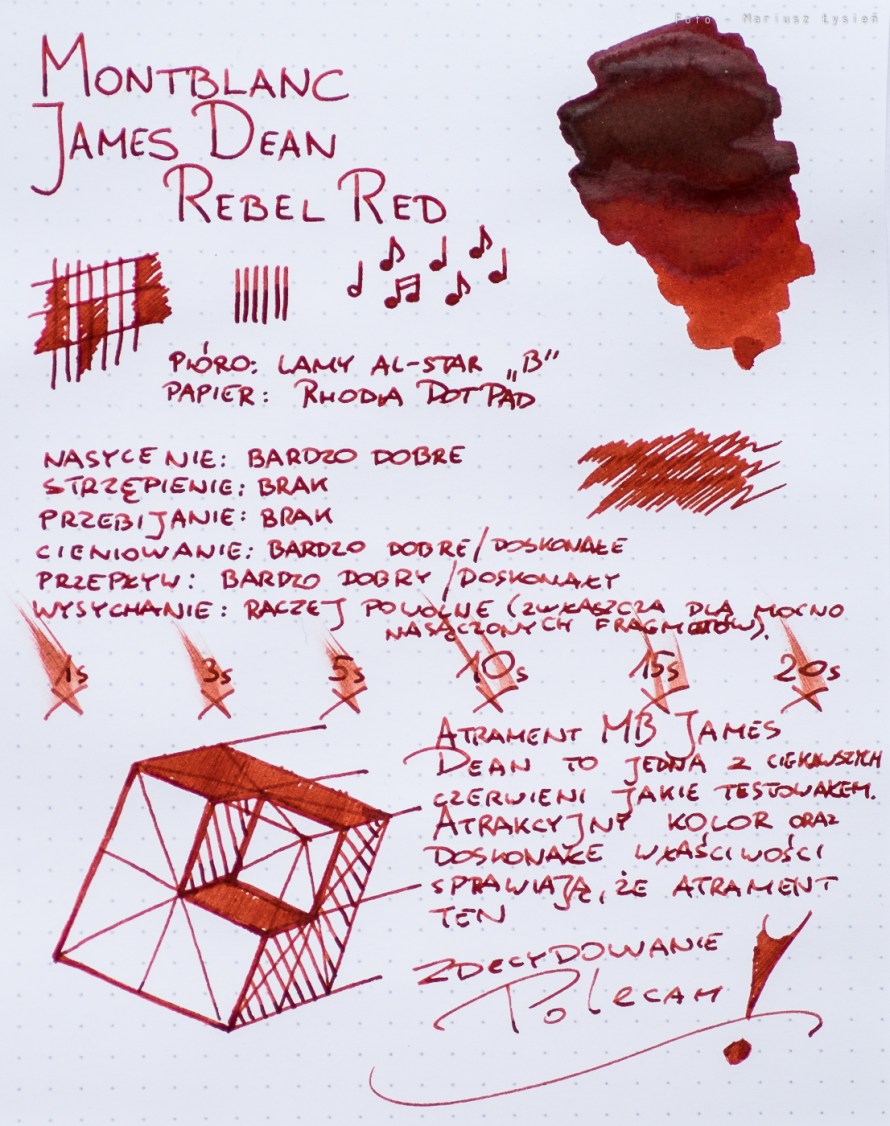 Foto - Mariusz Łysień
MONTBLANC
JAMES DEAN
REBEL RED
PIÓRO: LAMY AL-STAR „B”
PAPIER: RHODIA DOTPAD
NASYCENIE: BARDZO DOBRE
STRZĘPIENIE: BRAK
PRZEBIJANIE: BRAK
CIENIOWANIE: BARDZO DOBRE/DOSKONAŁE
PRZEPŁYW: BARDZO DOBRY/DOSKONAŁY
WYSYCHANIE: RACZEJ POWOLNE (ZWŁASZCZA DLA MOCNO
NASĄCZONYCH FRAGMENTÓW).
1s 3s 5s 10s 15s 20s
ATRAMENT MB JAMES
DEAN TO JEDNA Z CIEKAWSZYCH
CZERWIENI JAKIE TESTOWAŁEM.
ATRAKCYJNY KOLOR ORAZ
DOSKONAŁE WŁAŚCIWOŚCI
SPRAWIAJĄ, ŻE ATRAMENT
TEN
ZDECYDOWANIE
POLECAM!